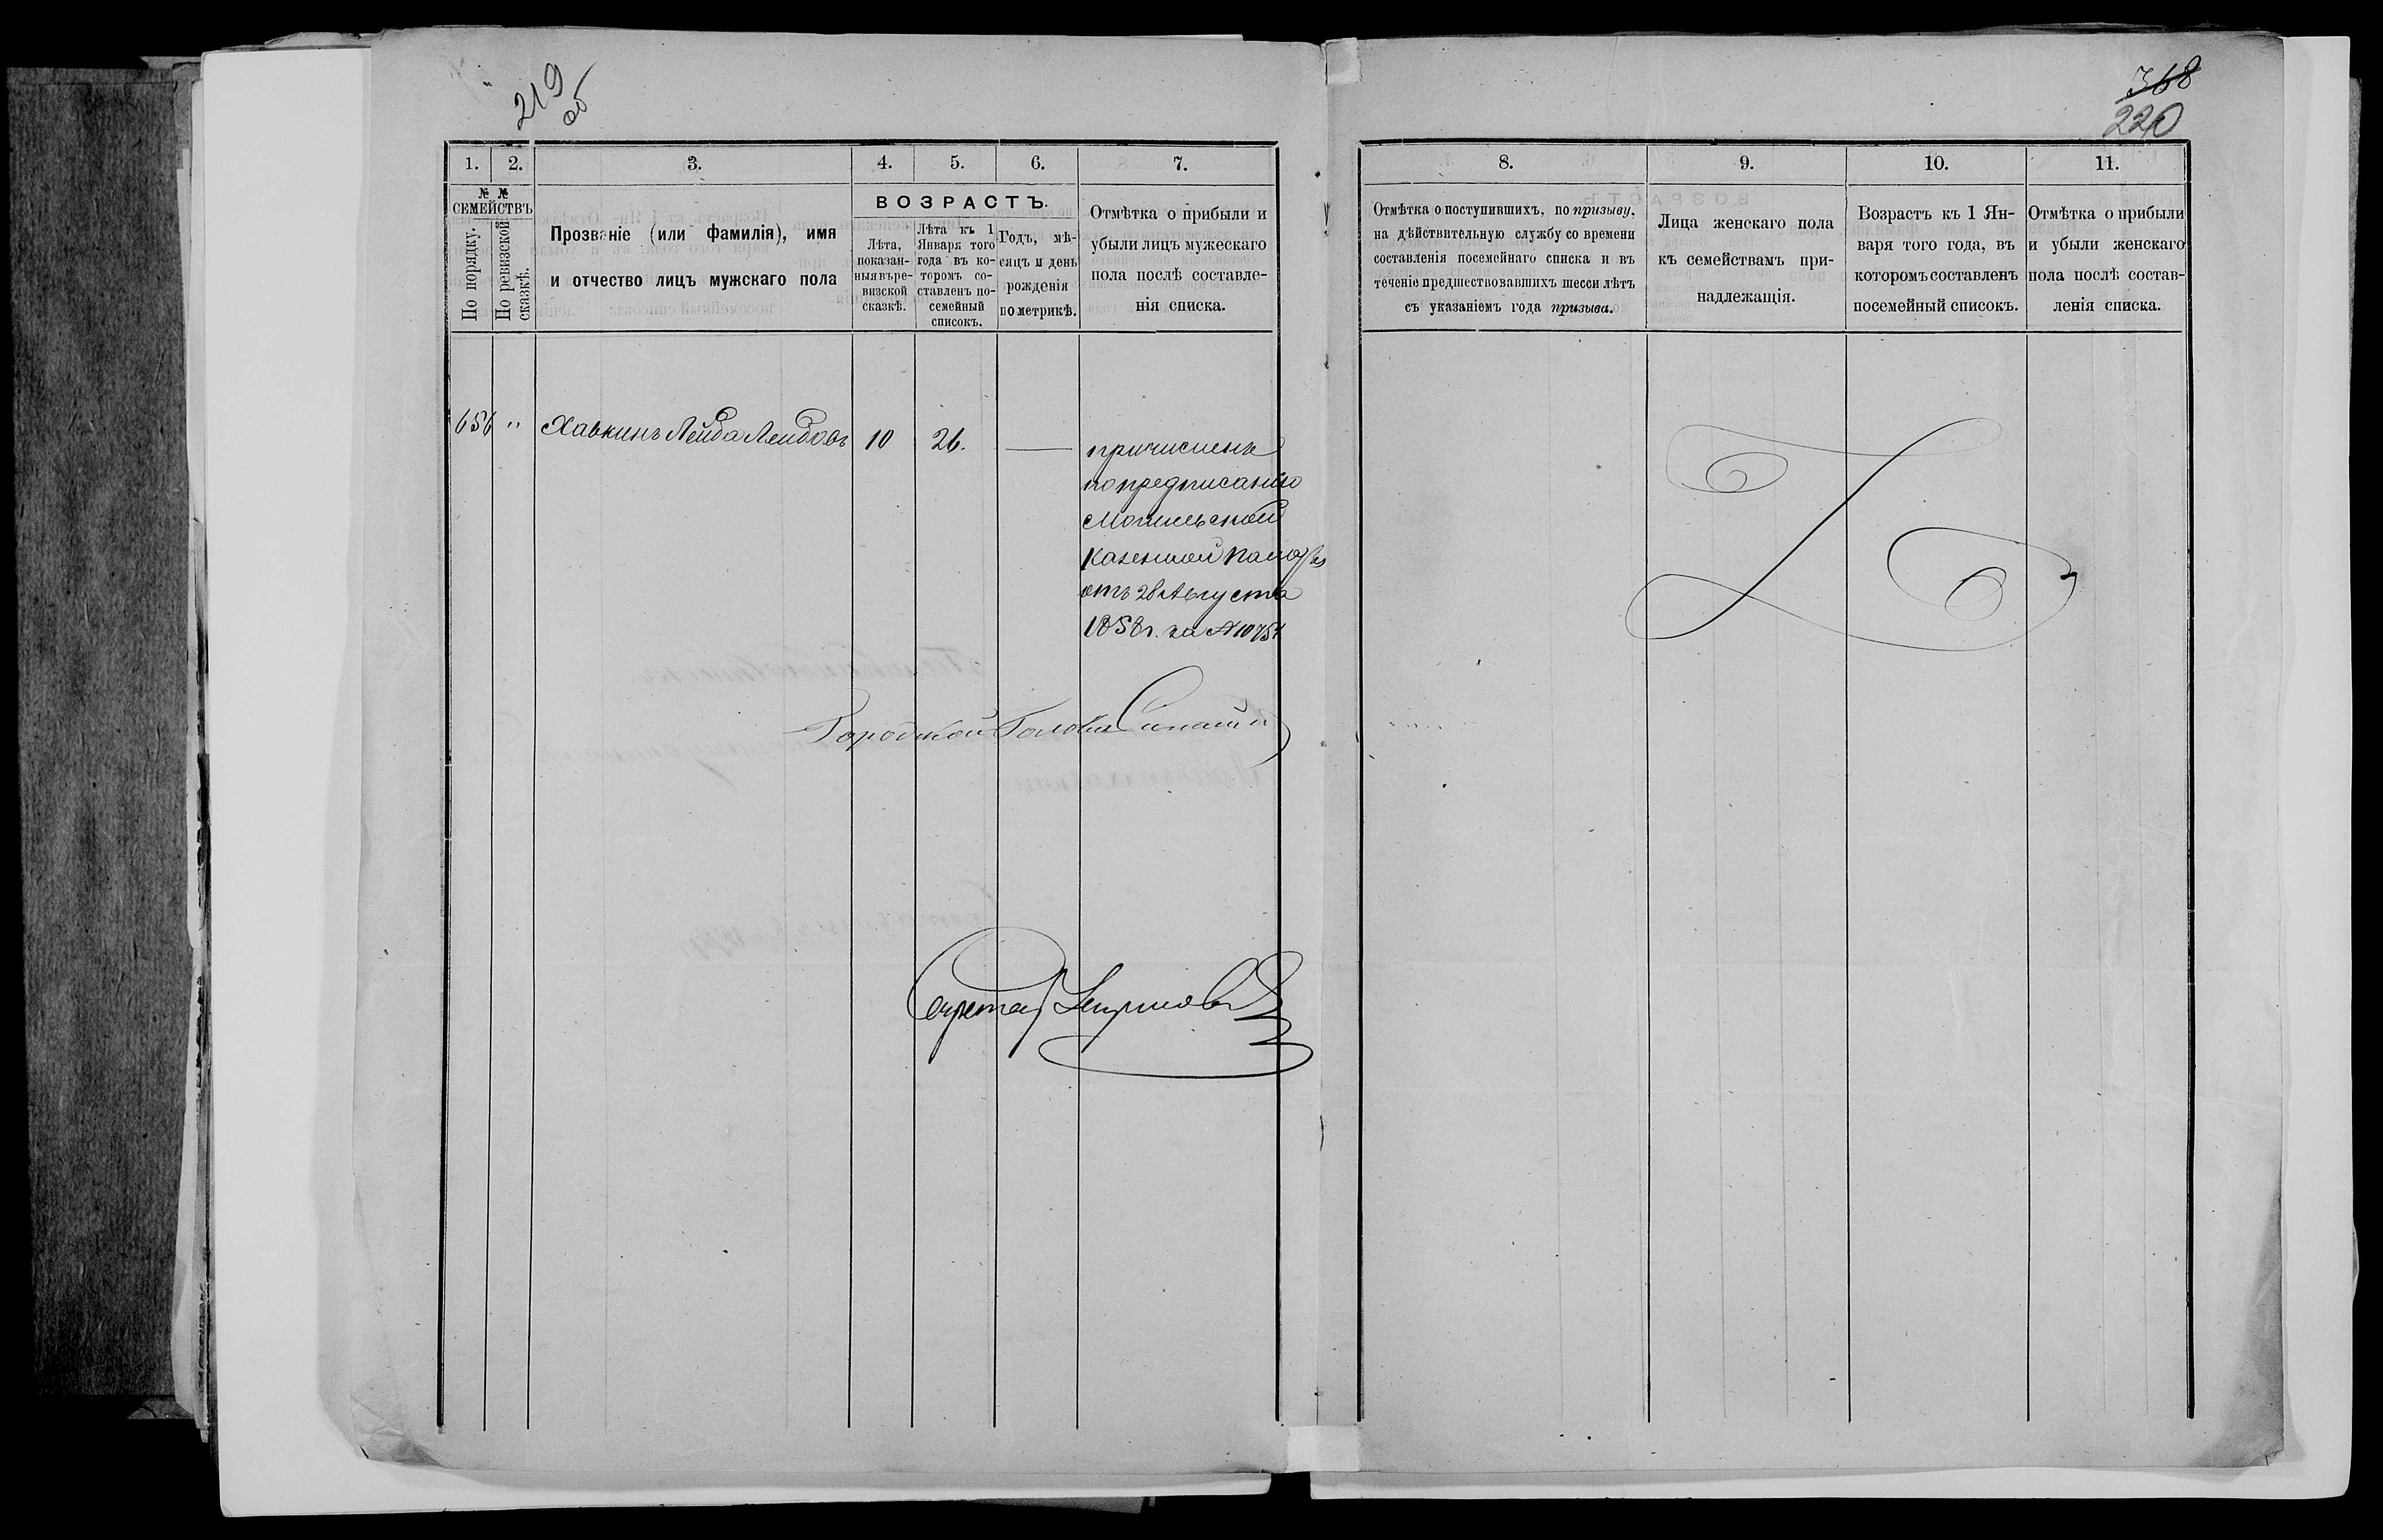 219
об
1.
2.
3.
4.
5.
6.
7.
№ №
СЕМЕЙСТВЪ
По порядку.
По ревизской
сказкѣ.
Прозваніе (или фамилія), имя
и отчество лицъ мужскаго пола
ВОЗРАСТЪ.
Лѣта,
показан-
ныя въ ре-
визской
сказкѣ.
Лѣта къ 1
Января того
года въ ко-
торомъ со-
ставленъ по-
семейный
списокъ.
Годъ, мѣ-
сяцъ и день
рожденія
по метрикѣ.
Отмѣтка о прибыли и
убыли лицъ мужескаго
пола послѣ составле-
нія списка.
656 " Хавкинъ Лейба Лейбовъ 10 26. —
причисленъ
по предписанію
Могилевской
Казенной Палаты
отъ 28 Августа
1858 г. за № 10751
Городской Голова
Секретарь
368
220
8.
9.
10.
11.
Отмѣтка о поступившихъ, по призыву,
на дѣйствительную службу со времени
составленія посемейнаго списка и въ
теченіе предшествовавшихъ шести лѣтъ
съ указаніемъ года призыва.
Лица женскаго пола
къ семействамъ при-
надлежащія.
Возрастъ къ 1 Ян-
варя того года, въ
которомъ составленъ
посемейный списокъ.
Отмѣтка о прибыли
и убыли женскаго
пола послѣ состав-
ленія списка.